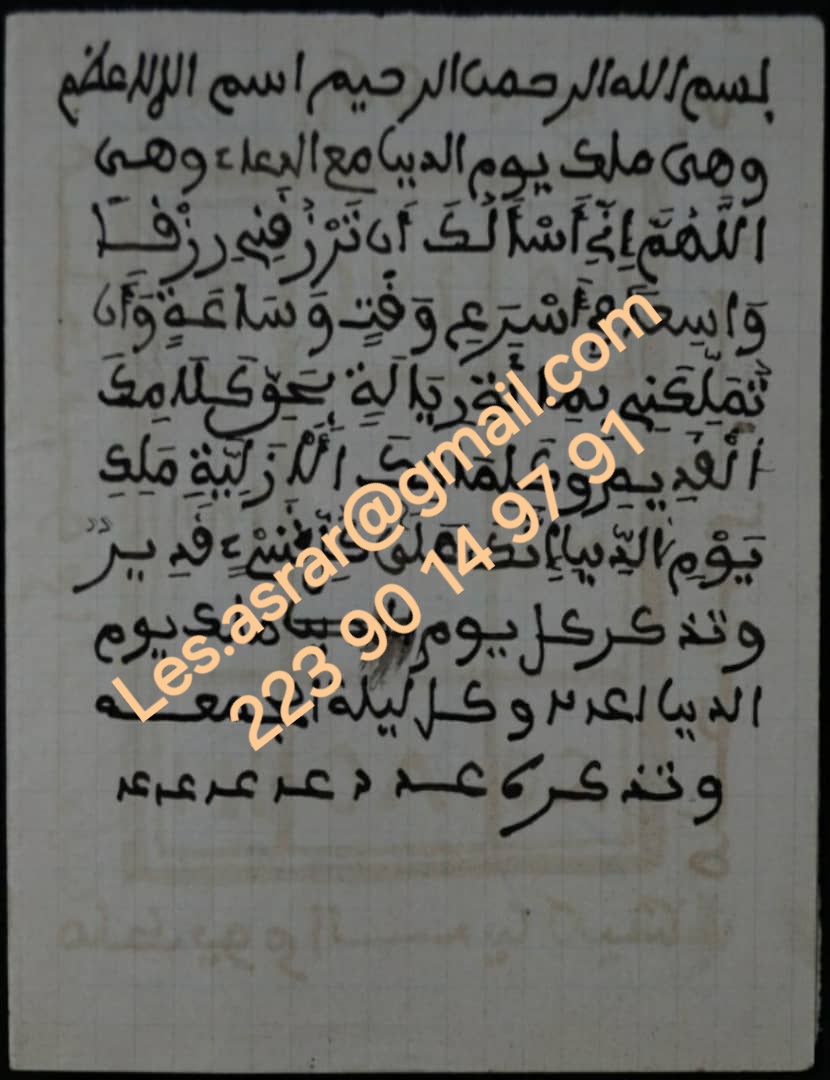 بسم الله الرحمن الرحيم اسم الله العظم
وهى ملك يوم الدنيا مع الدعاء وهى
اللَّهُمَّ إِنِّي أَسْأَلُكَ أَن تَرْزُقَنِي رِزْقًا
وَاسِعًا أَسْرَعِ وَقْتٍ وَسَاعَةٍ وَأَن
تُمَلِّكَنِي رِيَالَةٍ بِحَقِّ كَلَامِكَ
الْقَدِيمِ الْأَزَلِيَّةِ مَلِكِ
يَوْمِ الدُّنْيَا إِنَّكَ عَلَى كُلِّ شَيْءٍ قَدِيرٌ
وتذكر كل يوم ملك يوم
الدنيا وكل ليلة الجمعة
وتذكره عدد
Les.asrar@gmail.com
223 90 14 97 91